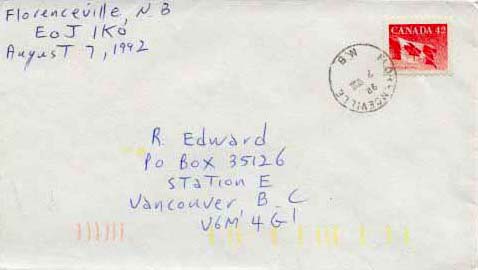 Florenceville, N B
E0J 1K0
August 7, 1992
CANADA 42
FLORENCEVILLE
N.B.
R. Edward
Po Box 35126
Station E
Vancouver B C
V6M 4G1